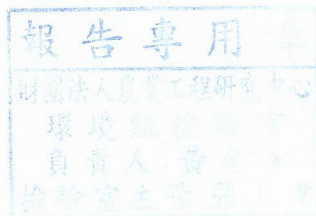 報告專用
財團法人農業工程研究中心
環境組檢驗室
負責人 黃
檢驗室主管 張